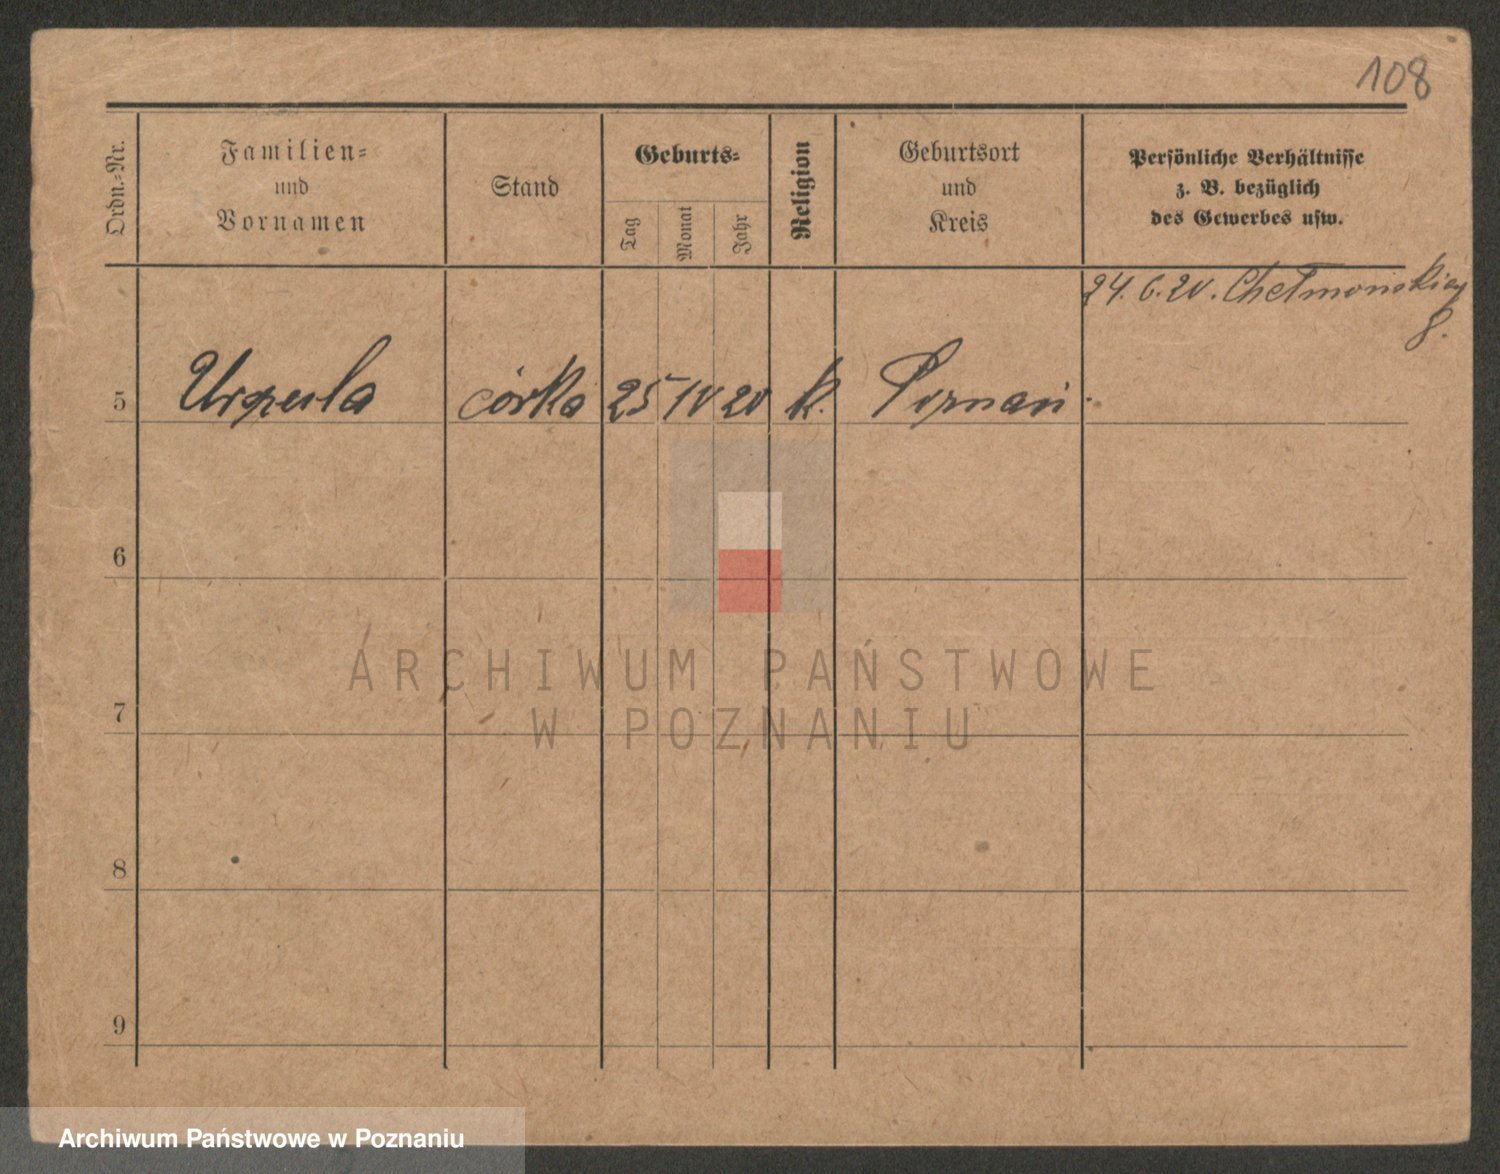 108
Ordn.-Nr.
Familien-
und
Vornamen
Stand
Geburts-
Tag
Monat
Jahr
Religion
Geburtsort
und
Kreis
Persönliche Verhältnisse
z. B. bezüglich
des Gewerbes usw.
24. 6. 20. Chełmońskiego
8.
5 Urszula córka 25 IV 20 k. Poznań
6
7
8
9
ARCHIWUM PAŃSTWOWE
W POZNANIU
Archiwum Państwowe w Poznaniu